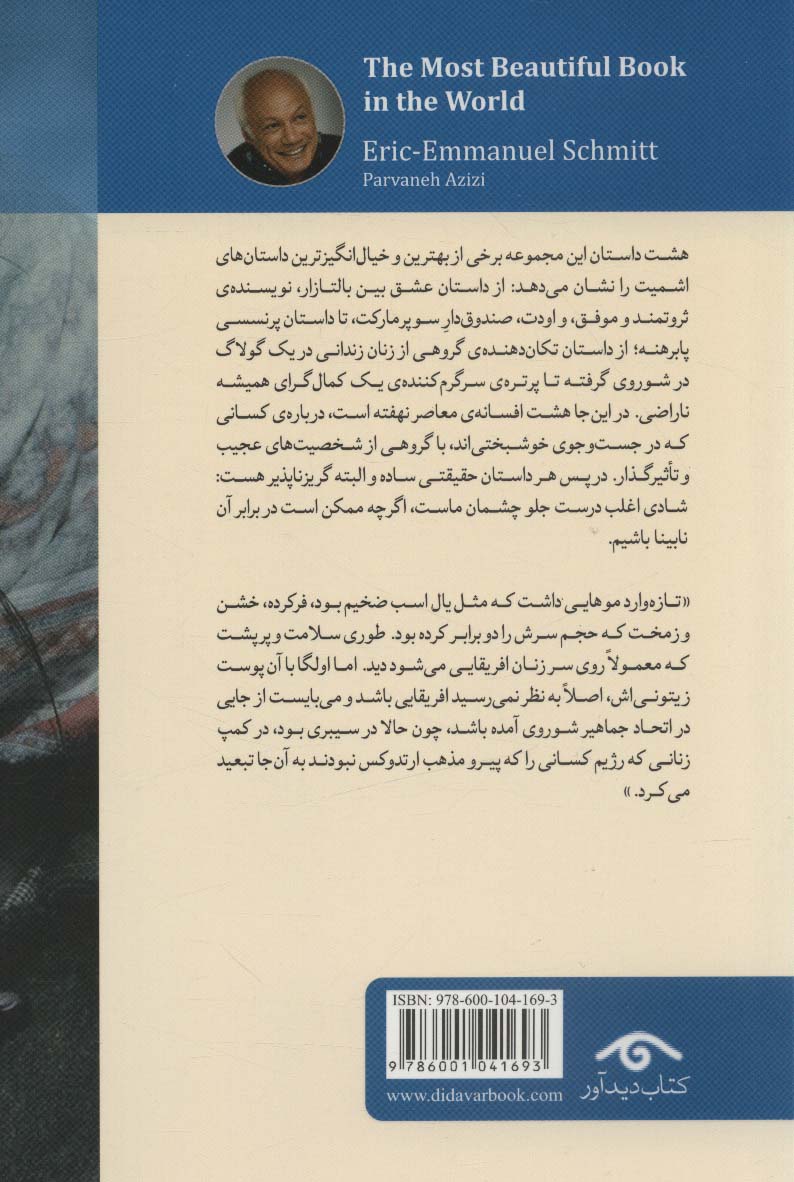 The Most Beautiful Book
in the World
Eric-Emmanuel Schmitt
Parvaneh Azizi
هشت داستان این مجموعه برخی از بهترین و خیال‌انگیزترین داستان‌های
اشمیت را نشان می‌دهد: از داستان عشق بین بالتازار، نویسنده‌ی
ثروتمند و موفق، و اودت، صندوق‌دارِ سوپرمارکت، تا داستان پرنسسی
پابرهنه؛ از داستان تکان‌دهنده‌ی گروهی از زنان زندانی در یک گولاگ
در شوروی گرفته تا پرتره‌ی سرگرم‌کننده‌ی یک کمال‌گرای همیشه
ناراضی. در این‌جا هشت افسانه‌ی معاصر نهفته است، درباره‌ی کسانی
که در جست‌وجوی خوشبختی‌اند، با گروهی از شخصیت‌های عجیب
و تأثیرگذار. در پس هر داستان حقیقتی ساده و البته گریزناپذیر هست:
شادی اغلب درست جلو چشمان ماست، اگرچه ممکن است در برابر آن
نابینا باشیم.
«تازه‌وارد موهایی داشت که مثل یال اسب ضخیم بود، فرکرده، خشن
و زمخت که حجم سرش را دو برابر کرده بود. طوری سلامت و پرپشت
که معمولاً روی سر زنان افریقایی می‌شود دید. اما اولگا با آن پوست
زیتونی‌اش، اصلاً به نظر نمی‌رسید افریقایی باشد و می‌بایست از جایی
در اتحاد جماهیر شوروی آمده باشد، چون حالا در سیبری بود، در کمپ
زنانی که رژیم کسانی را که پیرو مذهب ارتدوکس نبودند به آن‌جا تبعید
می‌کرد.»
ISBN: 978-600-104-169-3
9 786001 041693
www.didavarbook.com
کتاب دیدآور